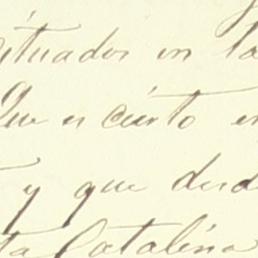 situados en la
Que es cierto e
y que desde
ta Catalina